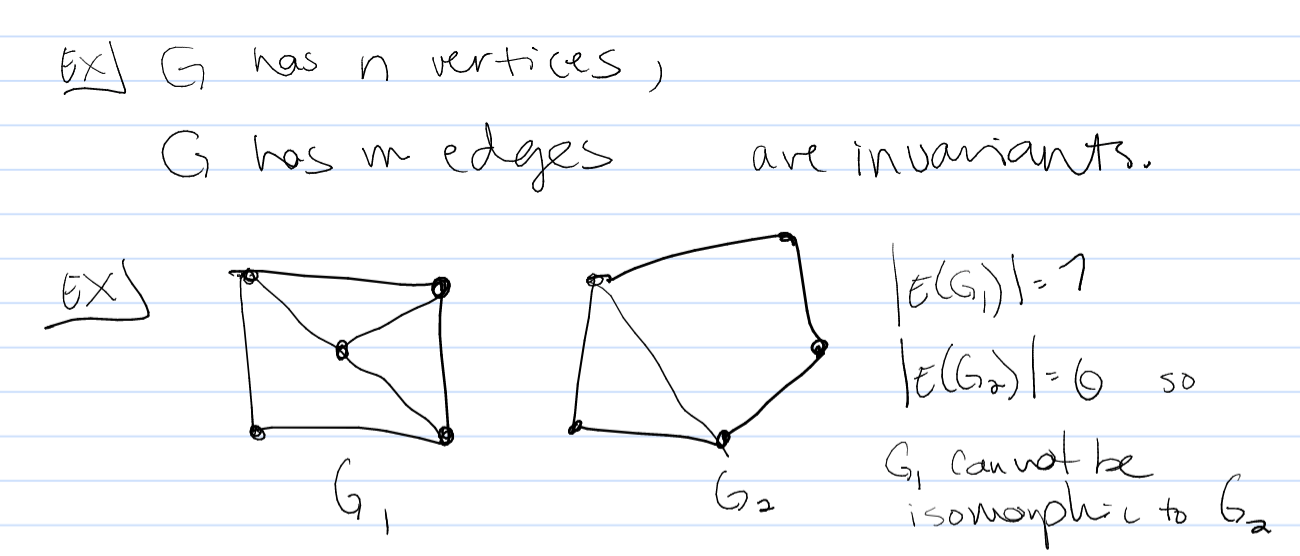 EX G has n vertices,
G has m edges are invariants.
EX
|E(G₁)| = 7
|E(G₂)| = 6 so
G₁ cannot be
isomorphic to G₂
G₁ G₂